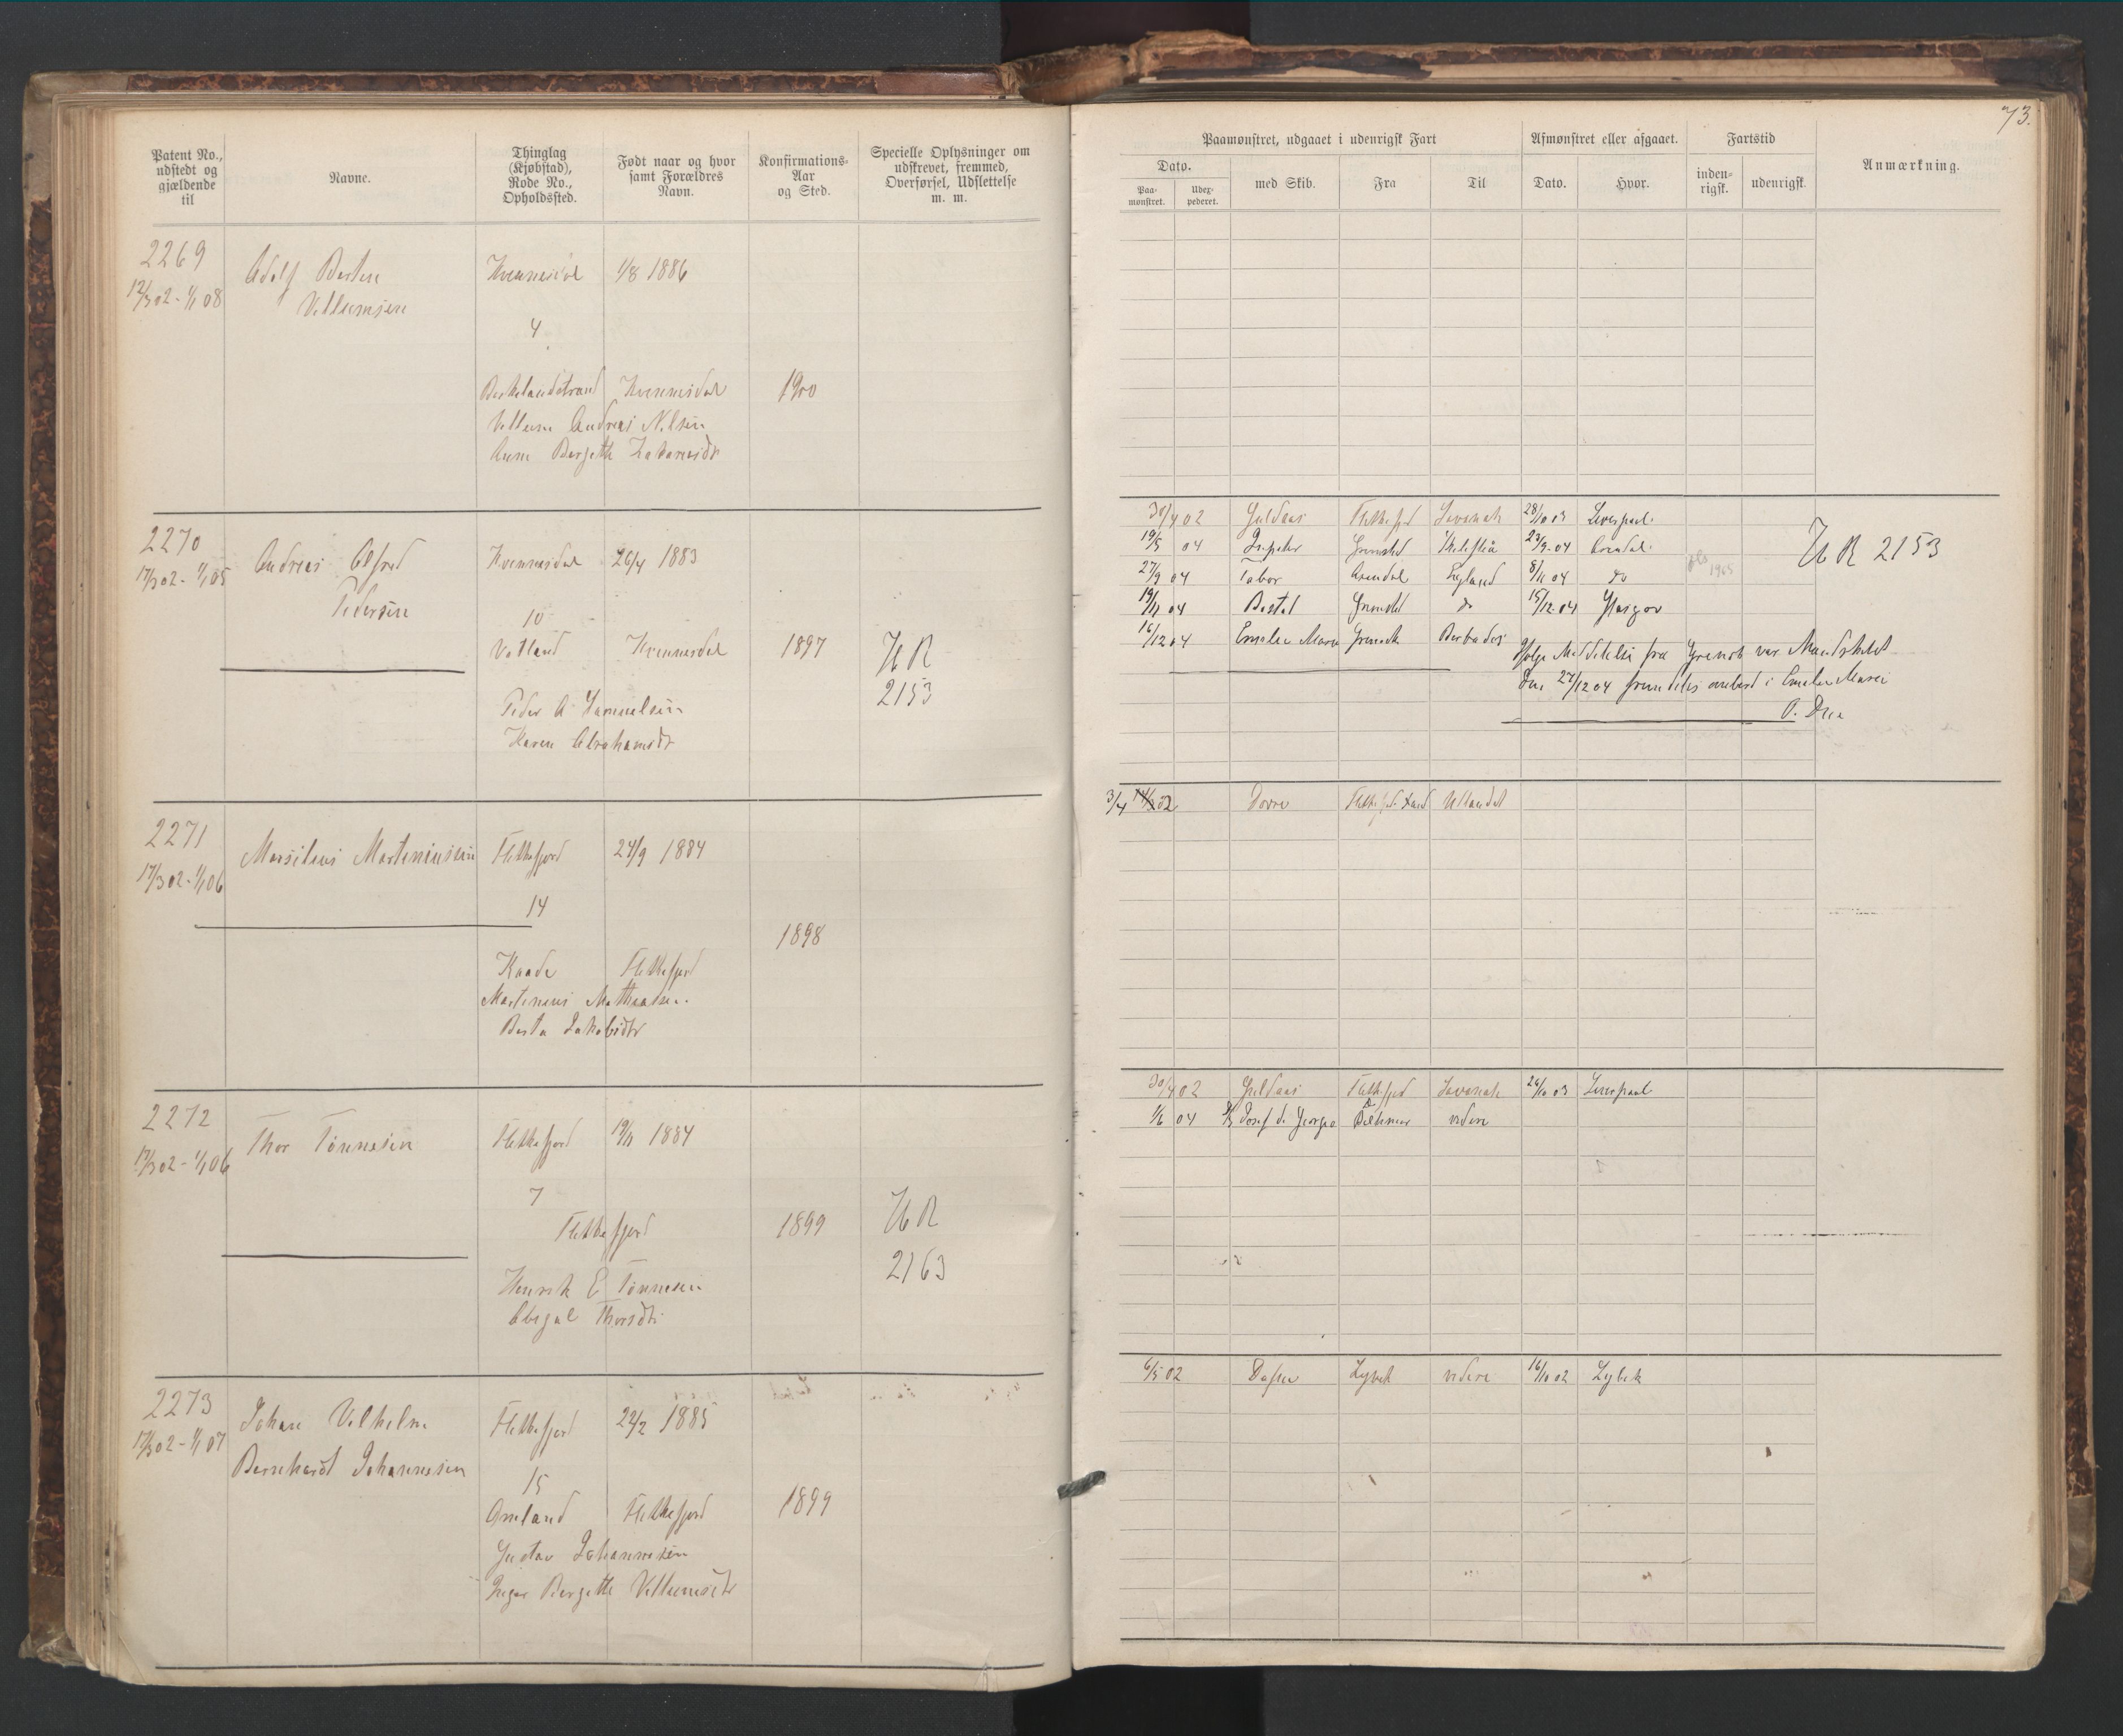 73.
Patent No., udstedt og gjældende til
Navne.
Thinglag (Kjøbstad), Rode No., Opholdssted.
Født naar og hvor samt Forældres Navn.
Konfirmations-Aar og Sted.
Specielle Oplysninger om udskrevet, fremmed, Overførsel, Udslettelse m. m.
Paamønstret, udgaaet i udenrigsk Fart
Afmønstret eller afgaaet.
Fartstid
Anmærkning.
Dato.
Paa-mønstret.
Udex-pederet.
med Skib.
Fra
Til
Dato.
Hvor.
inden-rigsk.
udenrigsk.
2269
12/3 02 - 1/1 08
Adolf Bertin
Villumsen
Kvinnesdal 1/8 1886
4
Kvinnesdal 1900
Villum Andreas Nilsen
Anne Bergette Zakariasdr
2270
17/3 02 - 1/1 05
Andreas Alfred
Pedersen
Kvinnesdal 26/4 1883
10
Vatland Kvinnesdal 1897 UR
2153
Peder A Samuelsen
Karen Abrahamsdr
30/4 02 Guldaas Flekkefjord Savanah 28/10 03 Liverpool.
19/5 04 Jupiter Grimstad 23/9 04 Arendal.
27/9 04 Tabor Arendal England 8/11 04 do
19/11 04 Grimstad do 15/12 04 Glasgov
16/12 04 Emilie Marie Greenock Barbados
UR 2153
1905
Ifølge Meddelelse fra Grenock var Mandskabet
den 27/12 04 fremdeles ombord i Emilie Marie
2271
17/3 02 - 1/1 06
Marsilius Martiniussen Flekkefjord 24/9 1884
14
1898
Flekkefjord
Martinius Mathiasen.
Berta Jakobsdtr
3/4 02 Dovre Flekkefjord Udlandet
2272
17/3 02 - 1/1 06
Thor Tønnesen Flekkefjord 19/11 1884
7
Flekkefjord 1899 UR
2163
Henrik E Tønnesen
Abigal Thorsdtr
30/4 02 Guldaas Flekkefjord Savanah 26/10 03 Liverpool
1/6 04 videre
2273
17/3 02 - 1/1 07
Johan Vilhelm
Bernhardt Johannesen
Flekkefjord 22/2 1885
15
Omland Flekkefjord 1899
Gustav Johannesen
Inger Bergette Villumsdtr
6/5 02 Lybek videre 16/10 02 Lybek